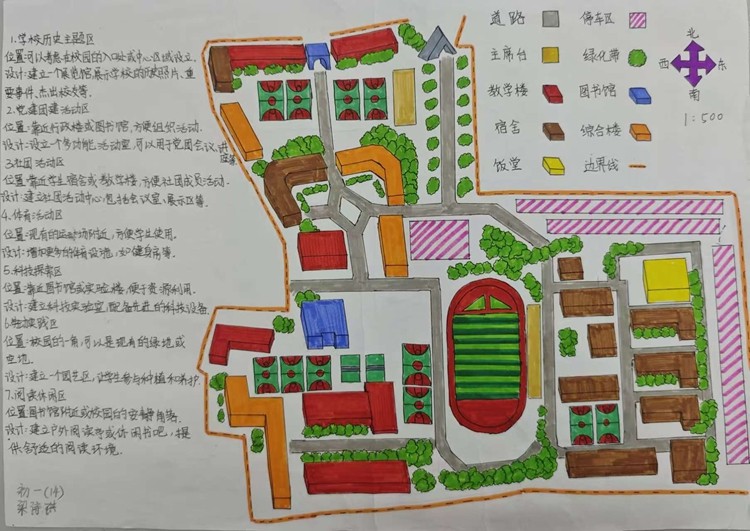 1.学校历史主题区
位置:可以考虑在校园的入口处或中心区域设立.
设计:建立一个展览馆,展示学校的历史照片、重
要事件、杰出校友等.
2.党建团建活动区
位置:靠近行政楼或图书馆,方便组织活动.
设计:设立一个多功能活动室,可以用于党团会议、
3.社团活动区
位置:靠近学生宿舍或教学楼,方便社团成员活动.
设计:建立社团活动中心,包括会议室、展示区等.
4.体育活动区
位置:现有的运动场附近,方便学生使用.
设计:增加更多的体育设施,如健身房等.
5.科技探索区
位置:靠近图书馆或实验楼,便于资源利用.
设计:建立科技实验室,配备先进的科技设备.
位置:校园的一角,可以是现有的绿地或
空地.
设计:建立一个园艺区,让学生参与种植和养护.
7.阅读休闲区
位置:图书馆附近或校园的安静角落.
设计:建立户外阅读亭或休闲书吧,提
供舒适的阅读环境.
初一(14)
道路
停车区
主席台
绿化带
教学楼
图书馆
宿舍
综合楼
饭堂
边界线
北
西
东
南
1:500